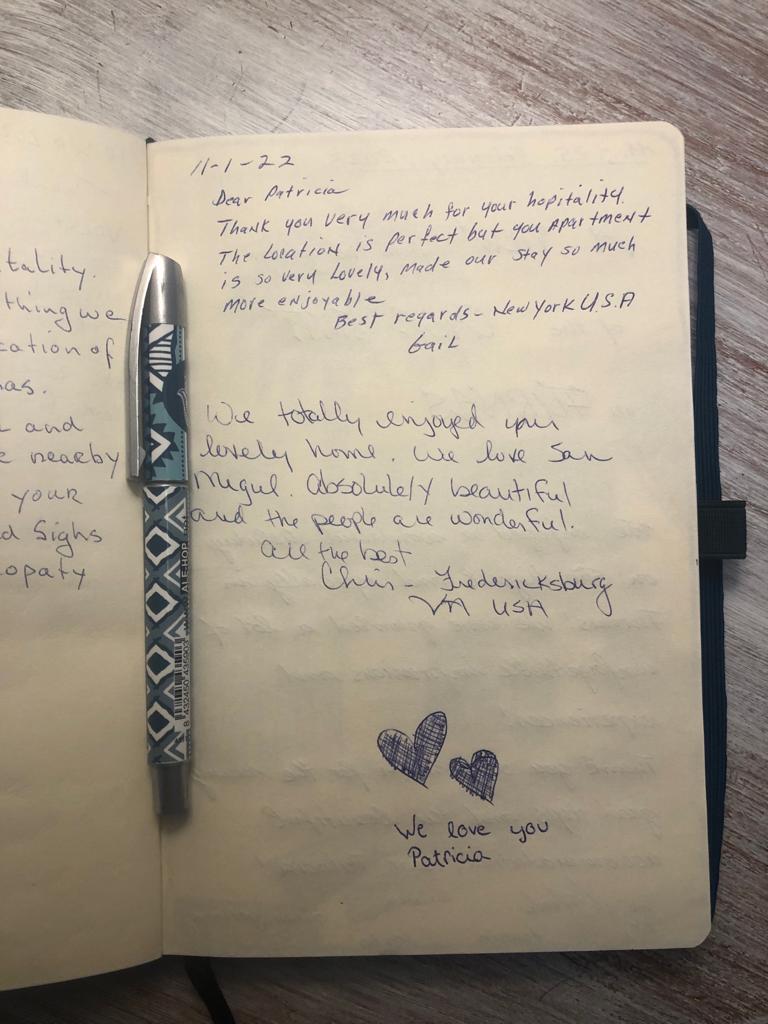 tality.
thing we
cation of
as.
and
nearby
your
d Sighs
opaty
ALE-HOP
8 432450 435903
11-1-22
Dear Patricia
Thank you very much for your hopitality.
The Location is perfect but you Apartment
is so very Lovely, made our stay so much
more enjoyable
Best regards - New York U.S.A
Gail
We totally enjoyed your
lovely home. We love San
Migul. Absolutely beautiful
and the people are wonderful.
All the best
Chris - Fredericksburg
VA USA
We love you
Patricia